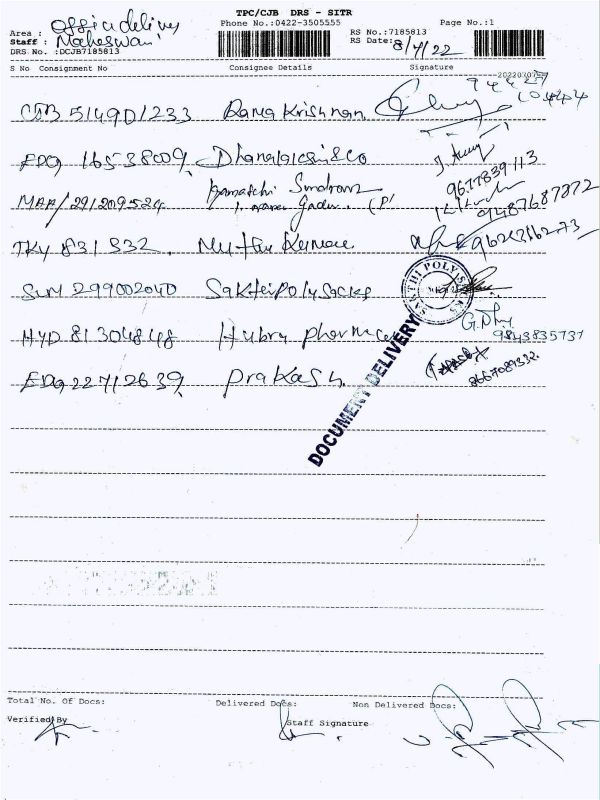 TPC/CJB DRS - SITR
Phone No.:0422-3505555
Page No.:1
Area : office delivery
Staff : Maheswari
DRS No. :DCJB7185813
RS No.:7185813
RS Date: 8/7/22
S No Consignment No Consignee Details Signature
CJB 5149D1233 Rama Krishnan
EDQ 16538009 Dhanalaksi & co
9677839113
MAA/291209524 Kamatchi Sundram
9487687872
TKY 831332 Muthu Kumar
SLM 299002040 Sakthi Poly sacks
SAKTHI POLY SACKS
HYD 81304848 Hubra Pharmacy
9843835737
EDQ 22712639 Prakash
8667089332
DOCUMENT DELIVERY
Total No. Of Docs: Delivered Docs: Non Delivered Docs:
Verified By Staff Signature